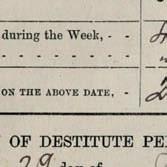 during the Week, - -
- - - - - - -
ON THE ABOVE DATE, -
OF DESTITUTE PE
29 day of